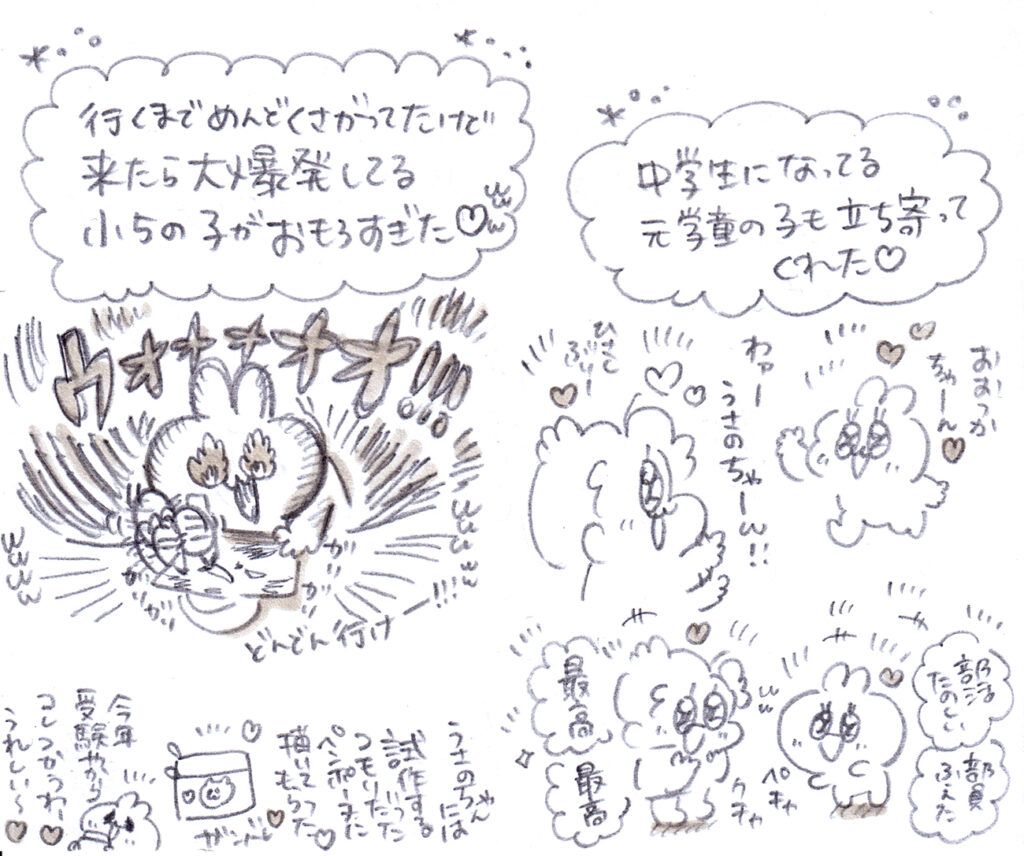 行くまでめんどくさがってたけど
来たら大爆発してる
小5の子がおもろすぎた♡
ウオオオオオ!!!
ガガガ
ガガ
どんどん行けー!!!
中学生になってる
元学童の子も立ち寄って
くれた♡
おおつか
ちゃーん
わぁー
うさのちゃーん!!
ひげて
ぶりー
最高
最高
ペチャ
クチャ
部活
たのしい
部員
ふえた
うさのちゃんには
試作する
つもりだった
ペンポーまに
描いてもらった
ザンボレ
今年
受験やから
コレつかうわー
うれしい〜